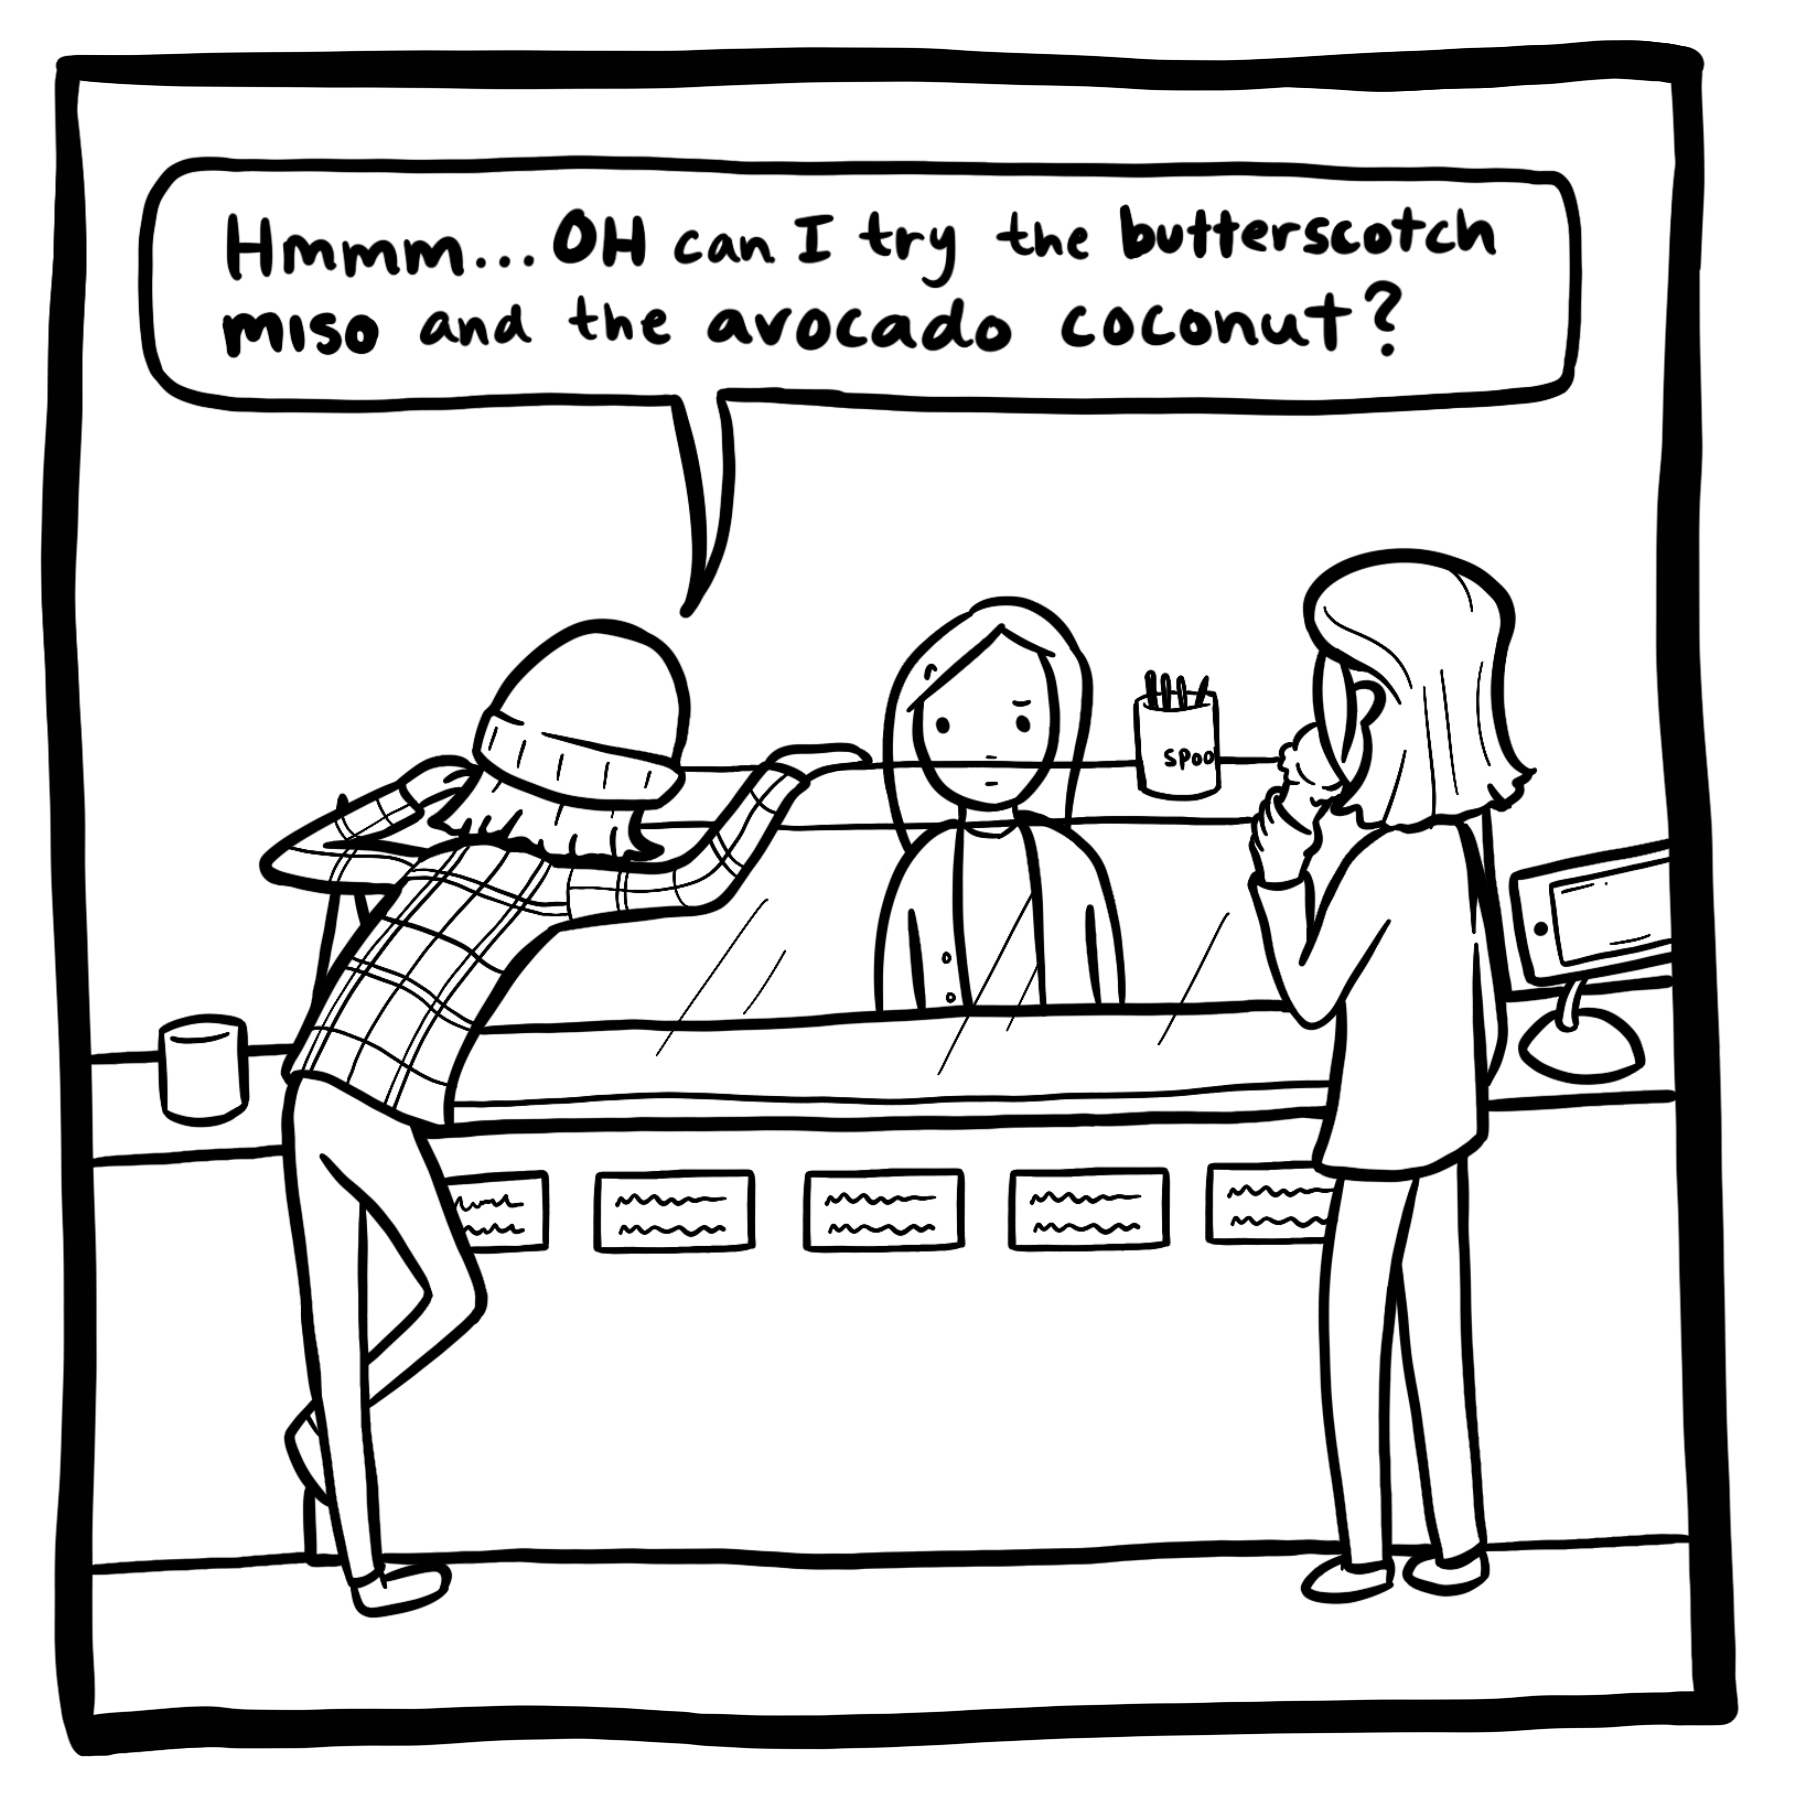 Hmmm... OH can I try the butterscotch
miso and the avocado coconut?
spoo